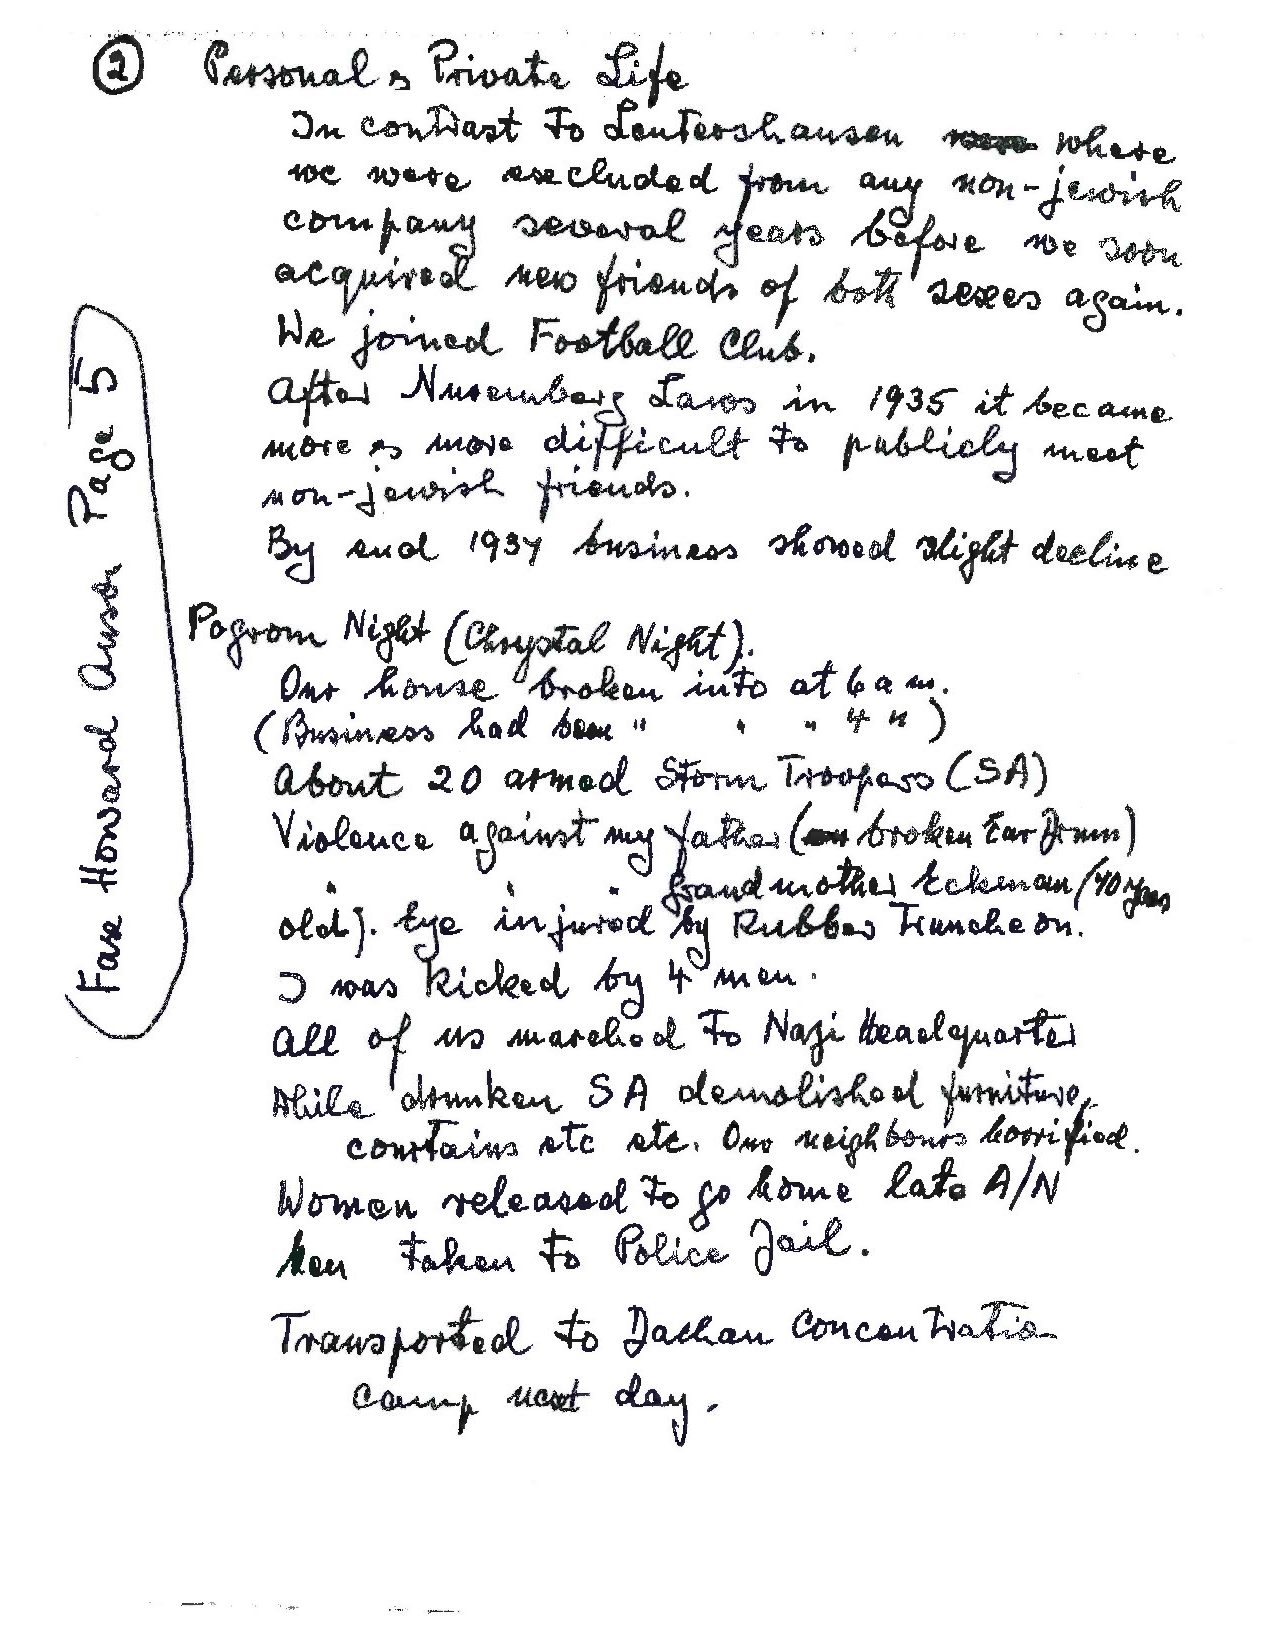 ② Personal & Private Life
In contrast to Leutershausen where
we were excluded from any non-jewish
company several years before we soon
acquired new friends of both sexes again.
We joined Football Club.
After Nuremberg Laws in 1935 it became
more & more difficult to publicly meet
non-jewish friends.
By end 1937 business showed slight decline
Pogrom Night (Chrystal Night).
Our house broken into at 6 a m.
(Business had been " " " 4 " )
About 20 armed Storm Troopers (SA)
Violence against my father ( broken Ear Drum)
" " " Grandmother Eckman (70 years
old). Eye injured by Rubber Truncheon.
I was kicked by 4 men.
All of us marched to Nazi Headquarter
While drunken SA demolished furniture,
courtains etc etc. Our neighbours horrified.
Women released to go home late A/N
Men taken to Police Jail.
Transported to Dachau Concentratio
camp next day.
(Fax Howard Anson Page 5